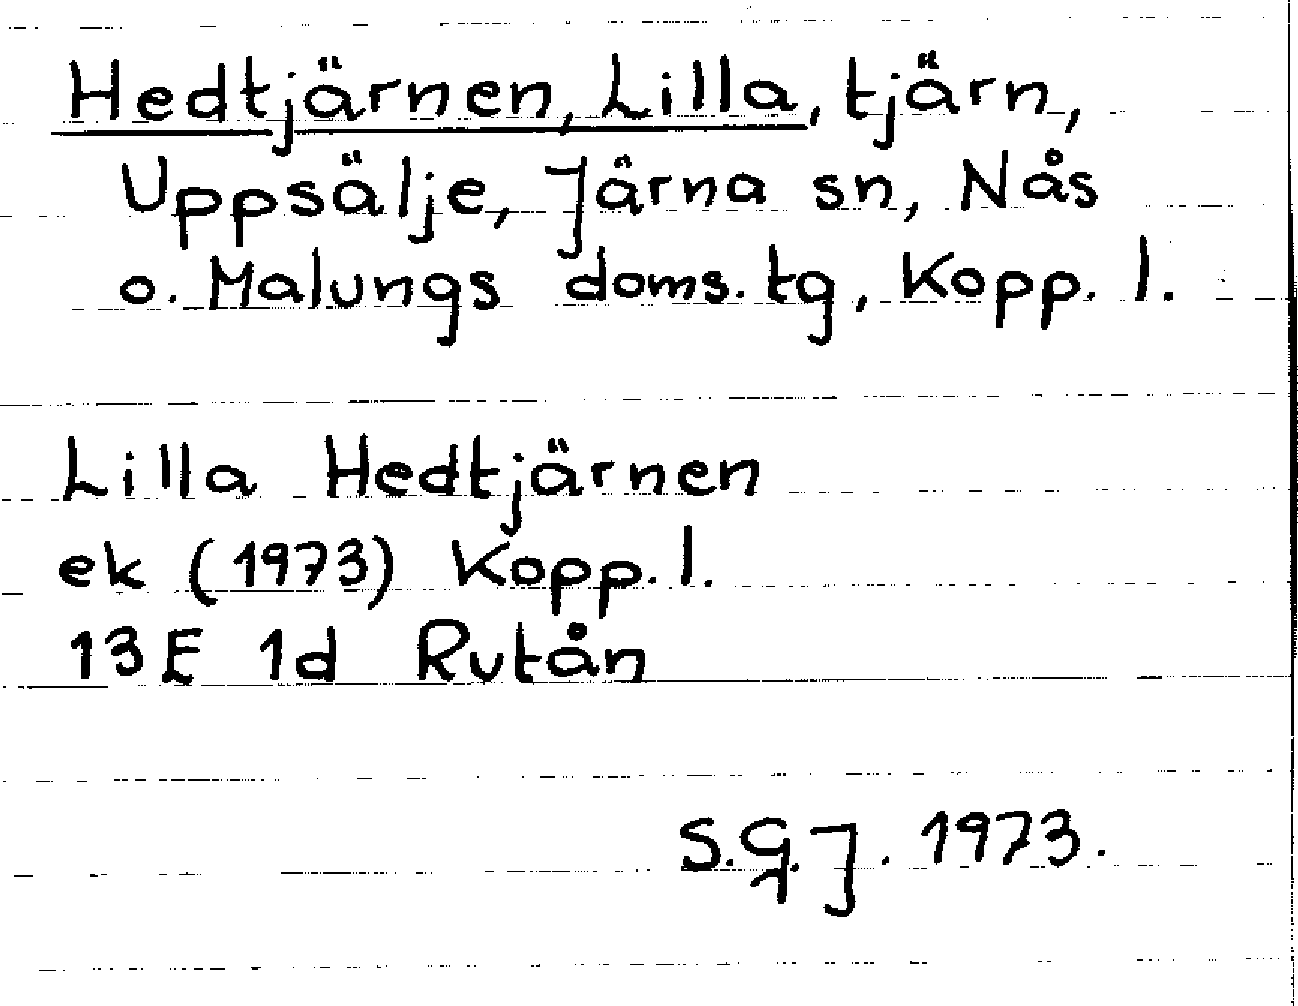 Hedtjärnen, Lilla, tjärn,
Uppsälje, Järna sn, Nås
o. Malungs doms. tg, Kopp. l.
Lilla Hedtjärnen
ek (1973) Kopp. l.
13E 1d Rutån
S.G.J. 1973.